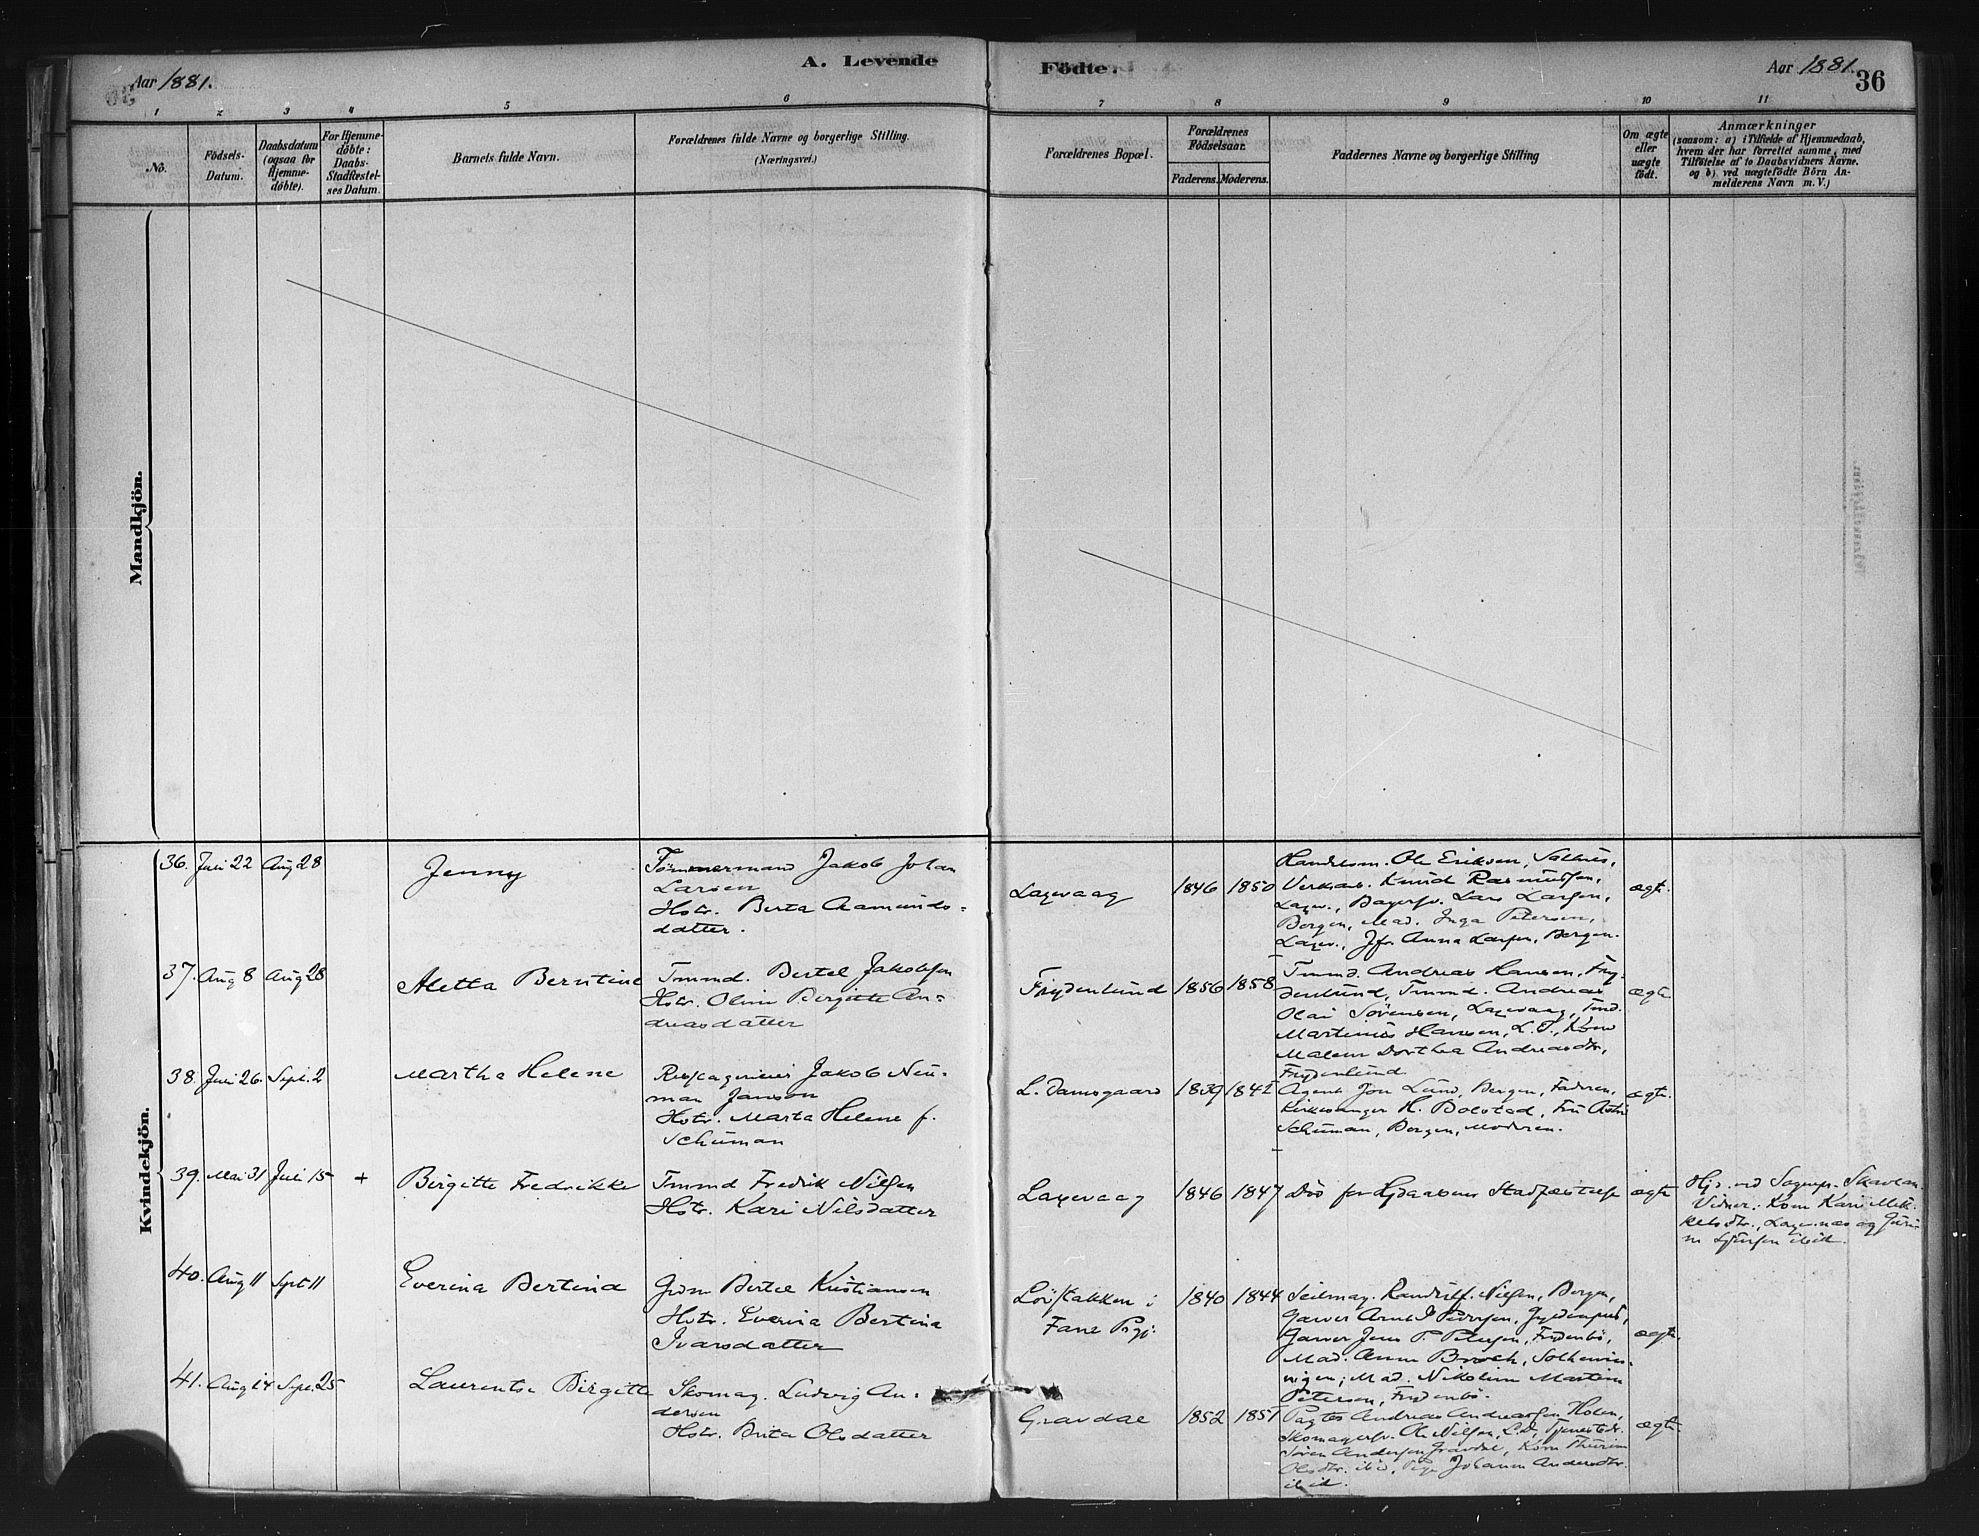 Aar 1881.
A. Levende
Födte.
Aar 1881.
36
1 2 3 4 5 6 7 8 9 10 11
No.
Födsels-
Datum.
Daabsdatum
(ogsaa for
Hjemme-
döbte).
For Hjemme-
döbte:
Daabs-
Stadfæstel-
ses Datum.
Barnets fulde Navn.
Forældrenes fulde Navne og borgerlige Stilling.
(Næringsvei.)
Forældrenes Bopæl.
Forældrenes
Födselsaar.
Faderens. Moderens.
Faddernes Navne og borgerlige Stilling
Om ægte
eller
uægte
födt.
Anmærkninger
(saasom: a) i Tilfælde af Hjemmedaab,
hvem der har forrettet samme, med
Tilföielse af to Daabsvidners Navne,
og b) ved uægtefödte Börn An-
melderens Navn m. V.)
Mandkjön.
Kvindekjön.
36. Juli 22 Aug 28
Jenny
Tømmermand Jakob Johan
Larsen
Hstr. Berta Aamunds-
datter.
Laxevaag
1846 1850
Ole Eriksen,
Knud Rasmussen,
Laxev., Lars Larsen,
Bergen, Mad. Inga Petersen,
Laxev., Jfr Anna Larsen, Bergen.
ægte.
37. Aug 8 Aug 28
Aletta Berntine
Tmmd. Bertel Jakobsen
Hstr. Oline Birgitte An-
dreasdatter
Frydenlund
1856 1858
Tmmd. Andreas Hansen, Fry-
denlund, Tmmd. Andreas
Olai Sørensen, Laxevaag,
Martinus Hansen, L. D., Kone
Malene Dorthea Andreasdtr,
Frydenlund
ægte
38. Juli 26. Sept. 2
Martha Helene
Jakob Neu-
man Janson
Hstr. Marta Helene f.
Schuman
L. Damsgaard
1839 1842
Agent Jon Lund, Bergen, Faderen,
Kirkesanger H. Bolstad, Fru
Schuman, Bergen, Moderen.
ægte.
39. Mai 31 Juli 15 +
Birgitte Fredrikke
Tmmd Fredrik Nilsen
Hstr. Kari Nilsdatter
Laxevaag
1846 1847
Død før Daabens Stadfæstelse
ægte
Hjd. ved Sognepr. Skavlan.
Vidner: Kone Kari Mik-
kelsdtr., Laxevaag og
ibid.
40. Aug 11 Sept 11
Everina Bertina
Grdm Bertel Kristiansen
Hstr. Everina Bertina
Ivarsdatter
Løvstakken i
Fane Prgj.
1840 1844
Seilmag. Nilsen, Bergen,
Garver Arnt
Garver Jens P. Petersen, Frydenbø,
Mad. Anne Broch, Solheims-
vigen, Mad. Nikoline Martine
Petersen, Frydenbø.
ægte.
41. Aug 14 Sept. 25
Laurentse Birgitte
Skomag. Ludvig An-
dersen
Hstr. Brita Olsdatter
Gravdal
1852 1851
Andreas Andreassen Holen,
Skomagersv. Ole Nilsen, L. D.,
Søren Andersen Gravdal, Kone
Olsdtr. ibid, Pige Johanne Andersdtr.
ibid.
ægte.